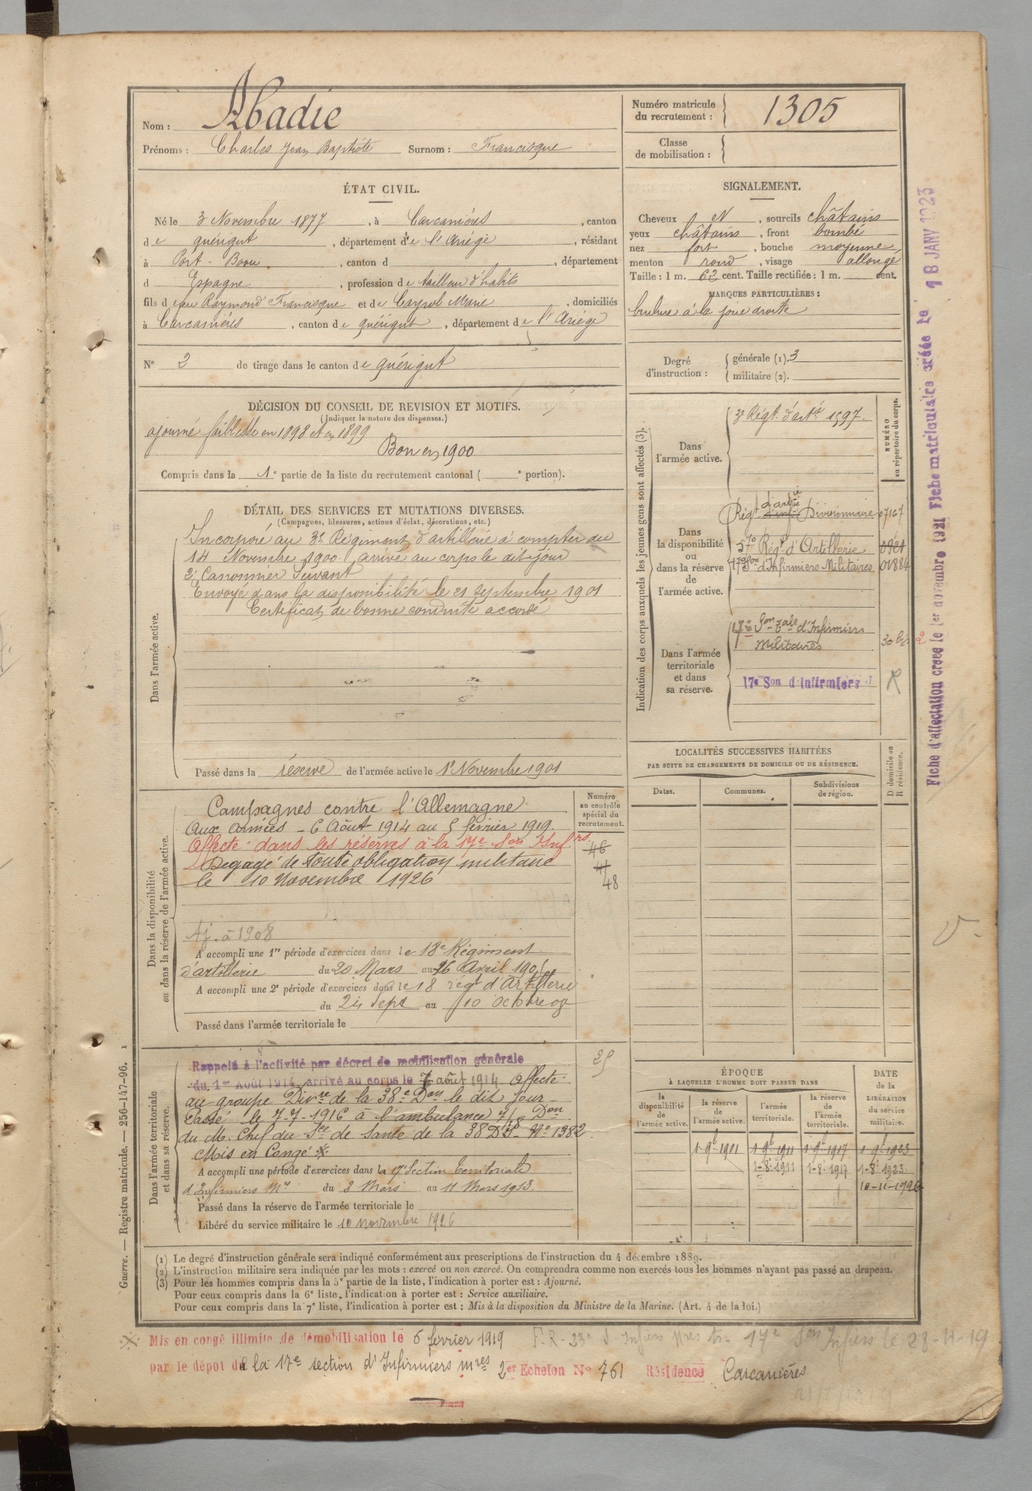 Nom : Abadie
Prénoms : Charles Jean Baptiste Surnom : Francisque
Numéro matricule du recrutement : 1305
Classe de mobilisation :
ÉTAT CIVIL.
Né le 3 Novembre 1877, à Carcanières, canton
de quérigut, département de l'Ariège, résidant
à Port-Bou, canton d , département
d Espagne, profession de tailleur d'habits
fils de Jean Raymond Francisque et de Cayrol Marie, domiciliés
à Carcanières, canton de quérigut, département de l'Ariège
N° 2 de tirage dans le canton de quérigut
SIGNALEMENT.
Cheveux N, sourcils châtains
yeux châtains, front bombé
nez fort, bouche moyenne
menton rond, visage allongé
Taille : 1 m. 62 cent. Taille rectifiée : 1 m. cent.
MARQUES PARTICULIÈRES :
brulure à la joue droite
Degré d'instruction : générale (1). 3
militaire (2).
DÉCISION DU CONSEIL DE REVISION ET MOTIFS.
(Indiquer la nature des dispenses.)
ajourné faiblesse en 1898 et en 1899
Bon en 1900
Compris dans la 1e partie de la liste du recrutement cantonal ( e portion).
DÉTAIL DES SERVICES ET MUTATIONS DIVERSES.
(Campagnes, blessures, actions d'éclat, décorations, etc.)
Dans l'armée active.
Incorporé au 3e Régiment d'artillerie à compter du
14 Novembre 1900, arrivé au corps le dit jour
2e Canonnier Servant
Envoyé dans la disponibilité le 21 septembre 1901
Certificat de bonne conduite accordé
Passé dans la réserve de l'armée active le 1er Novembre 1901
Indication des corps auxquels les jeunes gens sont affectés (3).
NUMÉRO au répertoire du corps.
Dans l'armée active.
3e Régt d'artie 1597
Dans la disponibilité ou dans la réserve de l'armée active.
Régt d'artie Divisionnaire 07167
57e Régt d'Artillerie 0901
17e Son d'Infirmiers Militaires 01884
Dans l'armée territoriale et dans sa réserve.
17e Son tale d'Infirmiers
Militaires
17e Son d'Infirmiers
R
LOCALITÉS SUCCESSIVES HABITÉES
PAR SUITE DE CHANGEMENTS DE DOMICILE OU DE RÉSIDENCE.
Dates. Communes. Subdivisions de région. D domicile ou R résidence.
Dans la disponibilité ou dans la réserve de l'armée active.
Numéro au contrôle spécial du recrutement.
Campagnes contre l'Allemagne
Aux Armées - 6 Août 1914 au 5 février 1919.
Affecté dans les réserves à la 17e Son d'Infrs
Dégagé de toute obligation militaire
le 10 Novembre 1926
46
48
Aj. à 1908
A accompli une 1re période d'exercices dans le 18e Régiment
d'artillerie du 20 Mars au 16 Avril 190
A accompli une 2e période d'exercices dans le 18 régt d'Artillerie
du 24 Sept au 10 Octobre 08
Passé dans l'armée territoriale le
Dans l'armée territoriale et dans sa réserve.
Rappelé à l'activité par décret de mobilisation générale
du 1er Août 1914, arrivé au corps le 7 août 1914. Affecté
au groupe Divre de la 38e Don le dit jour
Passé le 7-7-1916 à l'ambulance
du M. Chef du Sce de Santé de la 38 DI N° 1382
Mis en Congé ※
A accompli une période d'exercices dans la 17 Section territoriale
d'Infirmiers Mres du 3 Mars au 11 Mars 1913.
Passé dans la réserve de l'armée territoriale le
Libéré du service militaire le 10 novembre 1926
ÉPOQUE
À LAQUELLE L'HOMME DOIT PASSER DANS
la disponibilité de l'armée active. la réserve de l'armée active. l'armée territoriale. la réserve de l'armée territoriale.
DATE de la LIBÉRATION du service militaire.
1-8-1911 1-8-1917 1-8-1923
10-11-1926
(1) Le degré d'instruction générale sera indiqué conformément aux prescriptions de l'instruction du 4 décembre 1889.
(2) L'instruction militaire sera indiquée par les mots : exercé ou non exercé. On comprendra comme non exercés tous les hommes n'ayant pas passé au drapeau.
(3) Pour les hommes compris dans la 5e partie de la liste, l'indication à porter est : Ajourné.
Pour ceux compris dans la 6e liste, l'indication à porter est : Service auxiliaire.
Pour ceux compris dans la 7e liste, l'indication à porter est : Mis à la disposition du Ministre de la Marine. (Art. 4 de la loi.)
※ Mis en congé illimité de démobilisation le 6 février 1919
par le dépôt de la 17e section d'Infirmiers mres 2er Echelon N° 761 Résidence Carcanières
Guerre. — Registre matricule. — 256-147-96.
Fiche d'affectation créée le 1er novembre 1921 Fiche matriculaire créée le 18 JANV 1923